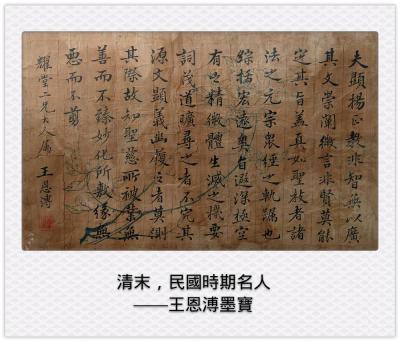 夫顯揚正教非智無以廣
其文崇闡微言非賢莫能
定其旨蓋真如聖教者諸
法之元宗眾經之軌躅也
綜括宏遠奧旨遐深極空
有之精微體生滅之機要
詞茂道曠尋之者不究其
源文顯義幽履之者莫測
其際故知聖慈所被業無
善而不臻妙化所敷緣無
惡而不剪
耀堂二兄大人屬 王恩溥
清末，民國時期名人
——王恩溥墨寶